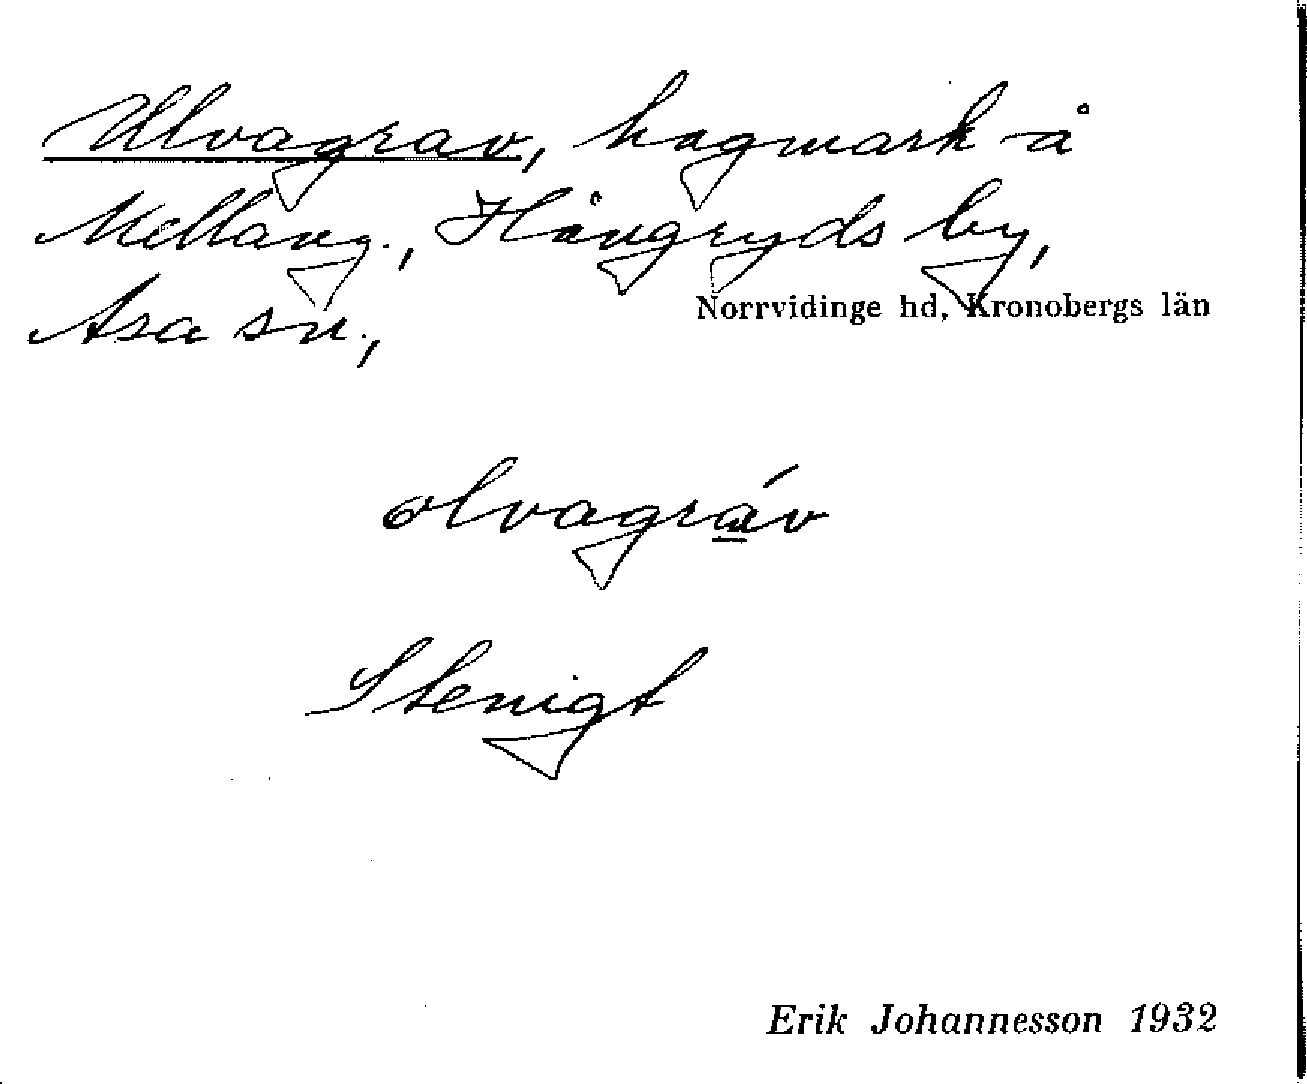 Ulvagrav, hagmark å
Mellang., Hångryds by,
Asa sn.,
Norrvidinge hd, Kronobergs län
olvagráv
Stenigt
Erik Johannesson 1932